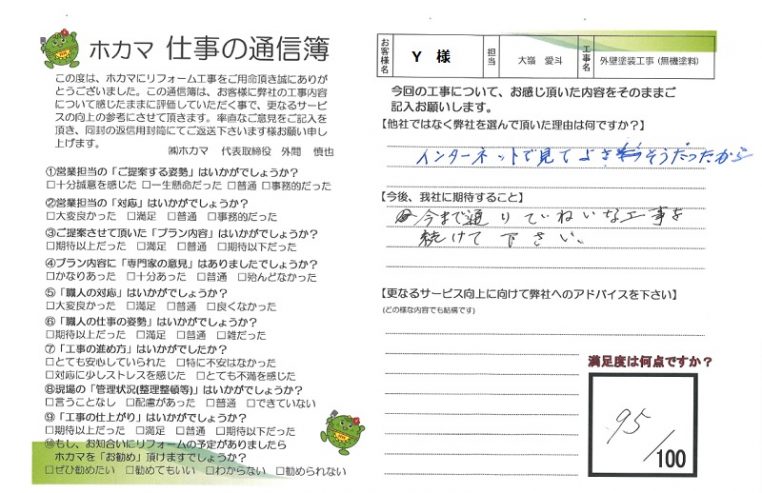 ホカマ 仕事の通信簿
この度は、ホカマにリフォーム工事をご用命頂き誠にありが
とうございました。この通信簿は、お客様に弊社の工事内容
について感じたままに評価していただく事で、更なるサービ
スの向上の参考にさせて頂きます。率直なご意見をご記入を
頂き、同封の返信用封筒にてご返送下さいます様お願い申し
上げます。
㈱ホカマ 代表取締役 外間 慎也
①営業担当の「ご提案する姿勢」はいかがでしょうか?
□十分誠意を感じた □一生懸命だった □普通 □事務的だった
②営業担当の「対応」はいかがでしょうか?
□大変良かった □満足 □普通 □事務的だった
③ご提案させて頂いた「プラン内容」はいかがでしょうか?
□期待以上だった □満足 □普通 □期待以下だった
④プラン内容に「専門家の意見」はありましたでしょうか?
□かなりあった □十分あった □普通 □殆んどなかった
⑤「職人の対応」はいかがでしょうか?
□大変良かった □満足 □普通 □良くなかった
⑥「職人の仕事の姿勢」はいかがでしょうか?
□期待以上だった □満足 □普通 □雑だった
⑦「工事の進め方」はいかがでしたか?
□とても安心していられた □特に不安はなかった
□対応に少しストレスを感じた □とても不満を感じた
⑧現場の「管理状況(整理整頓等)」はいかがでしょうか?
□言うことなし □配慮があった □普通 □できていない
⑨「工事の仕上がり」はいかがでしょうか?
□期待以上だった □満足 □普通 □期待以下だった
⑩もし、お知合いにリフォームの予定がありましたら
ホカマを「お勧め」頂けますでしょうか?
□ぜひ勧めたい □勧めてもいい □わからない □勧められない
お客様名 Y 様 担当 大嶺 愛斗 工事名 外壁塗装工事(無機塗料)
今回の工事について、お感じ頂いた内容をそのままご
記入お願いします。
【他社ではなく弊社を選んで頂いた理由は何ですか?】
インターネットで見てよさそうだったから
【今後、我社に期待すること】
今まで通りていねいな工事を
続けて下さい。
【更なるサービス向上に向けて弊社へのアドバイスを下さい】
(どの様な内容でも結構です)
満足度は何点ですか?
95/100